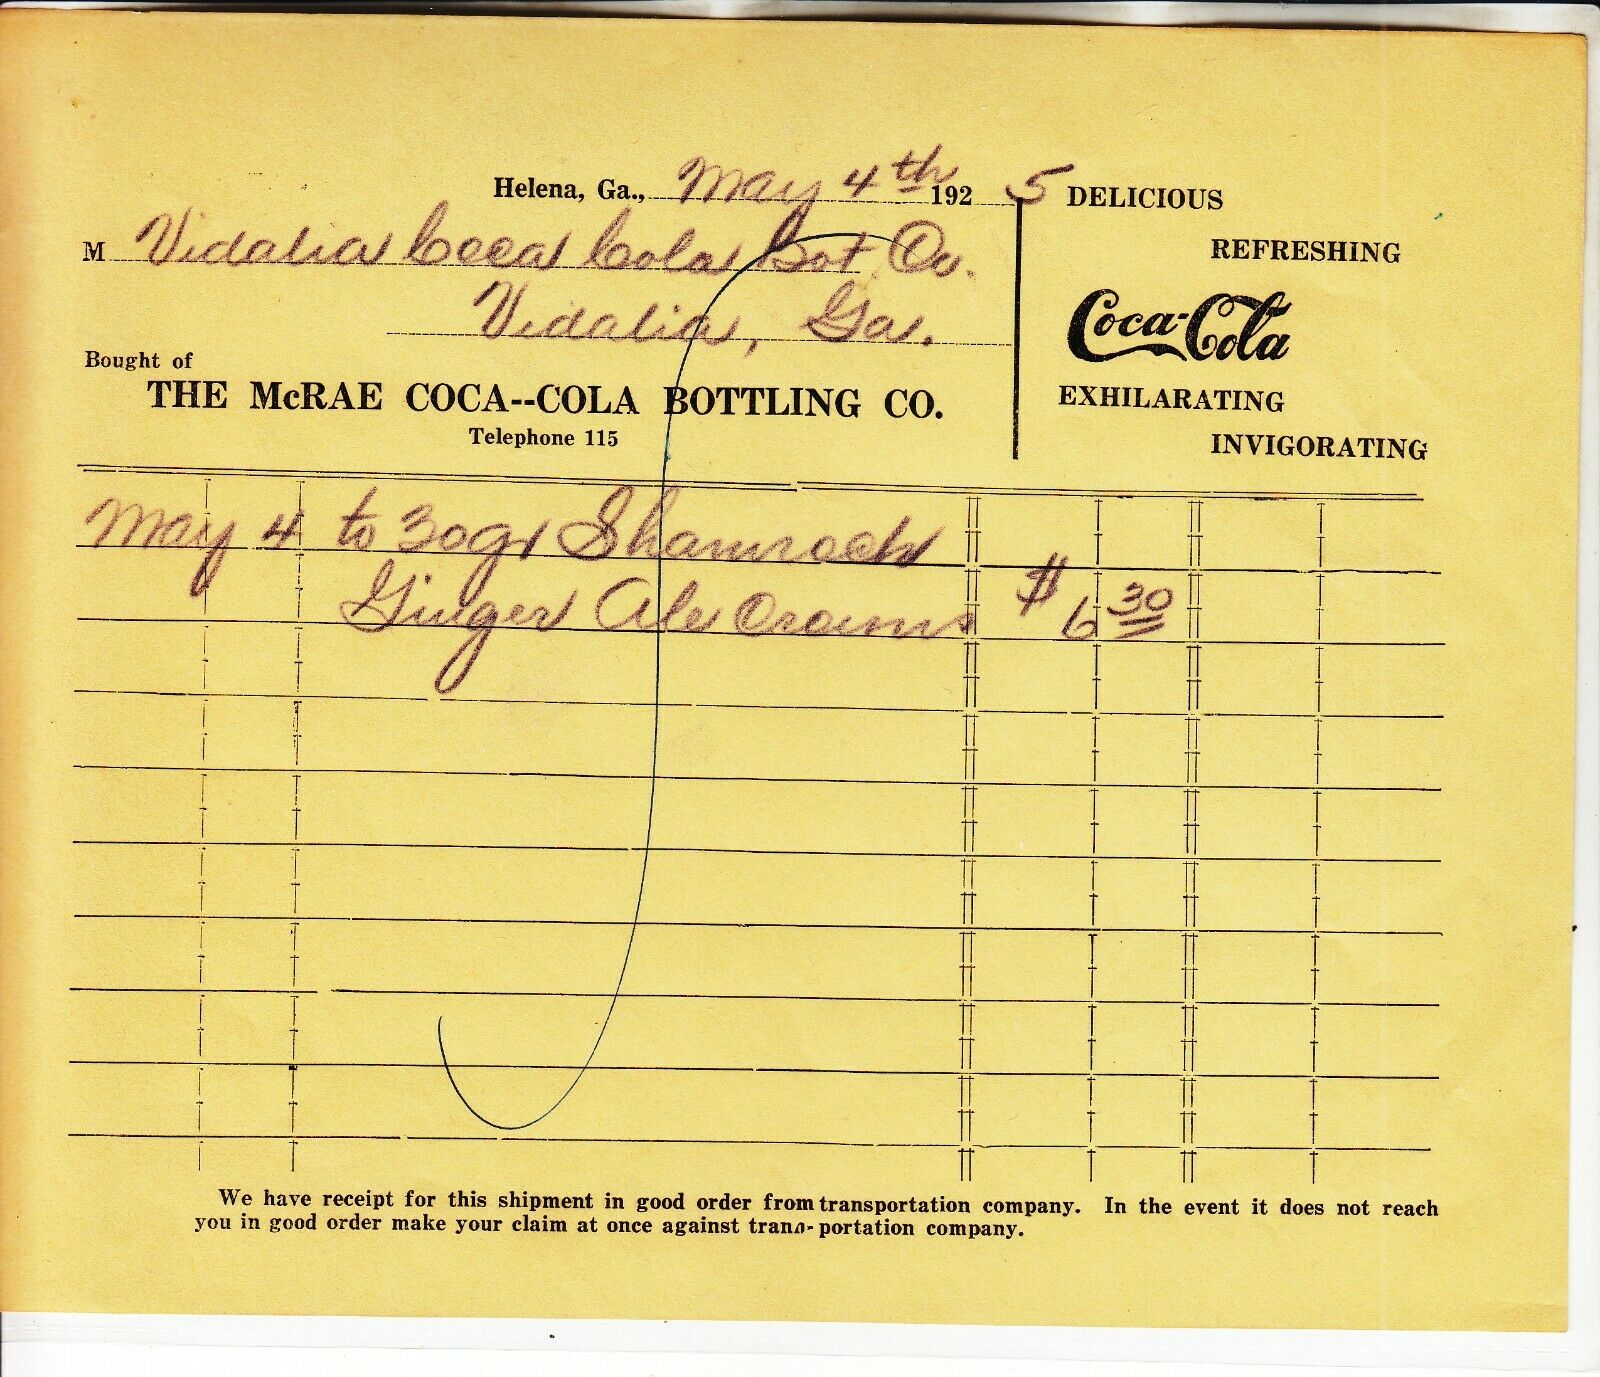 Helena, Ga., May 4th 1925
M Vidalia Coca Cola Bot Co.
Vidalia, Ga.
Bought of
THE McRAE COCA--COLA BOTTLING CO.
Telephone 115
DELICIOUS
REFRESHING
Coca-Cola
EXHILARATING
INVIGORATING
May 4 to 30 gr Shamrock
Ginger Ale Crowns $ 6 30
We have receipt for this shipment in good order from transportation company. In the event it does not reach
you in good order make your claim at once against trans-portation company.